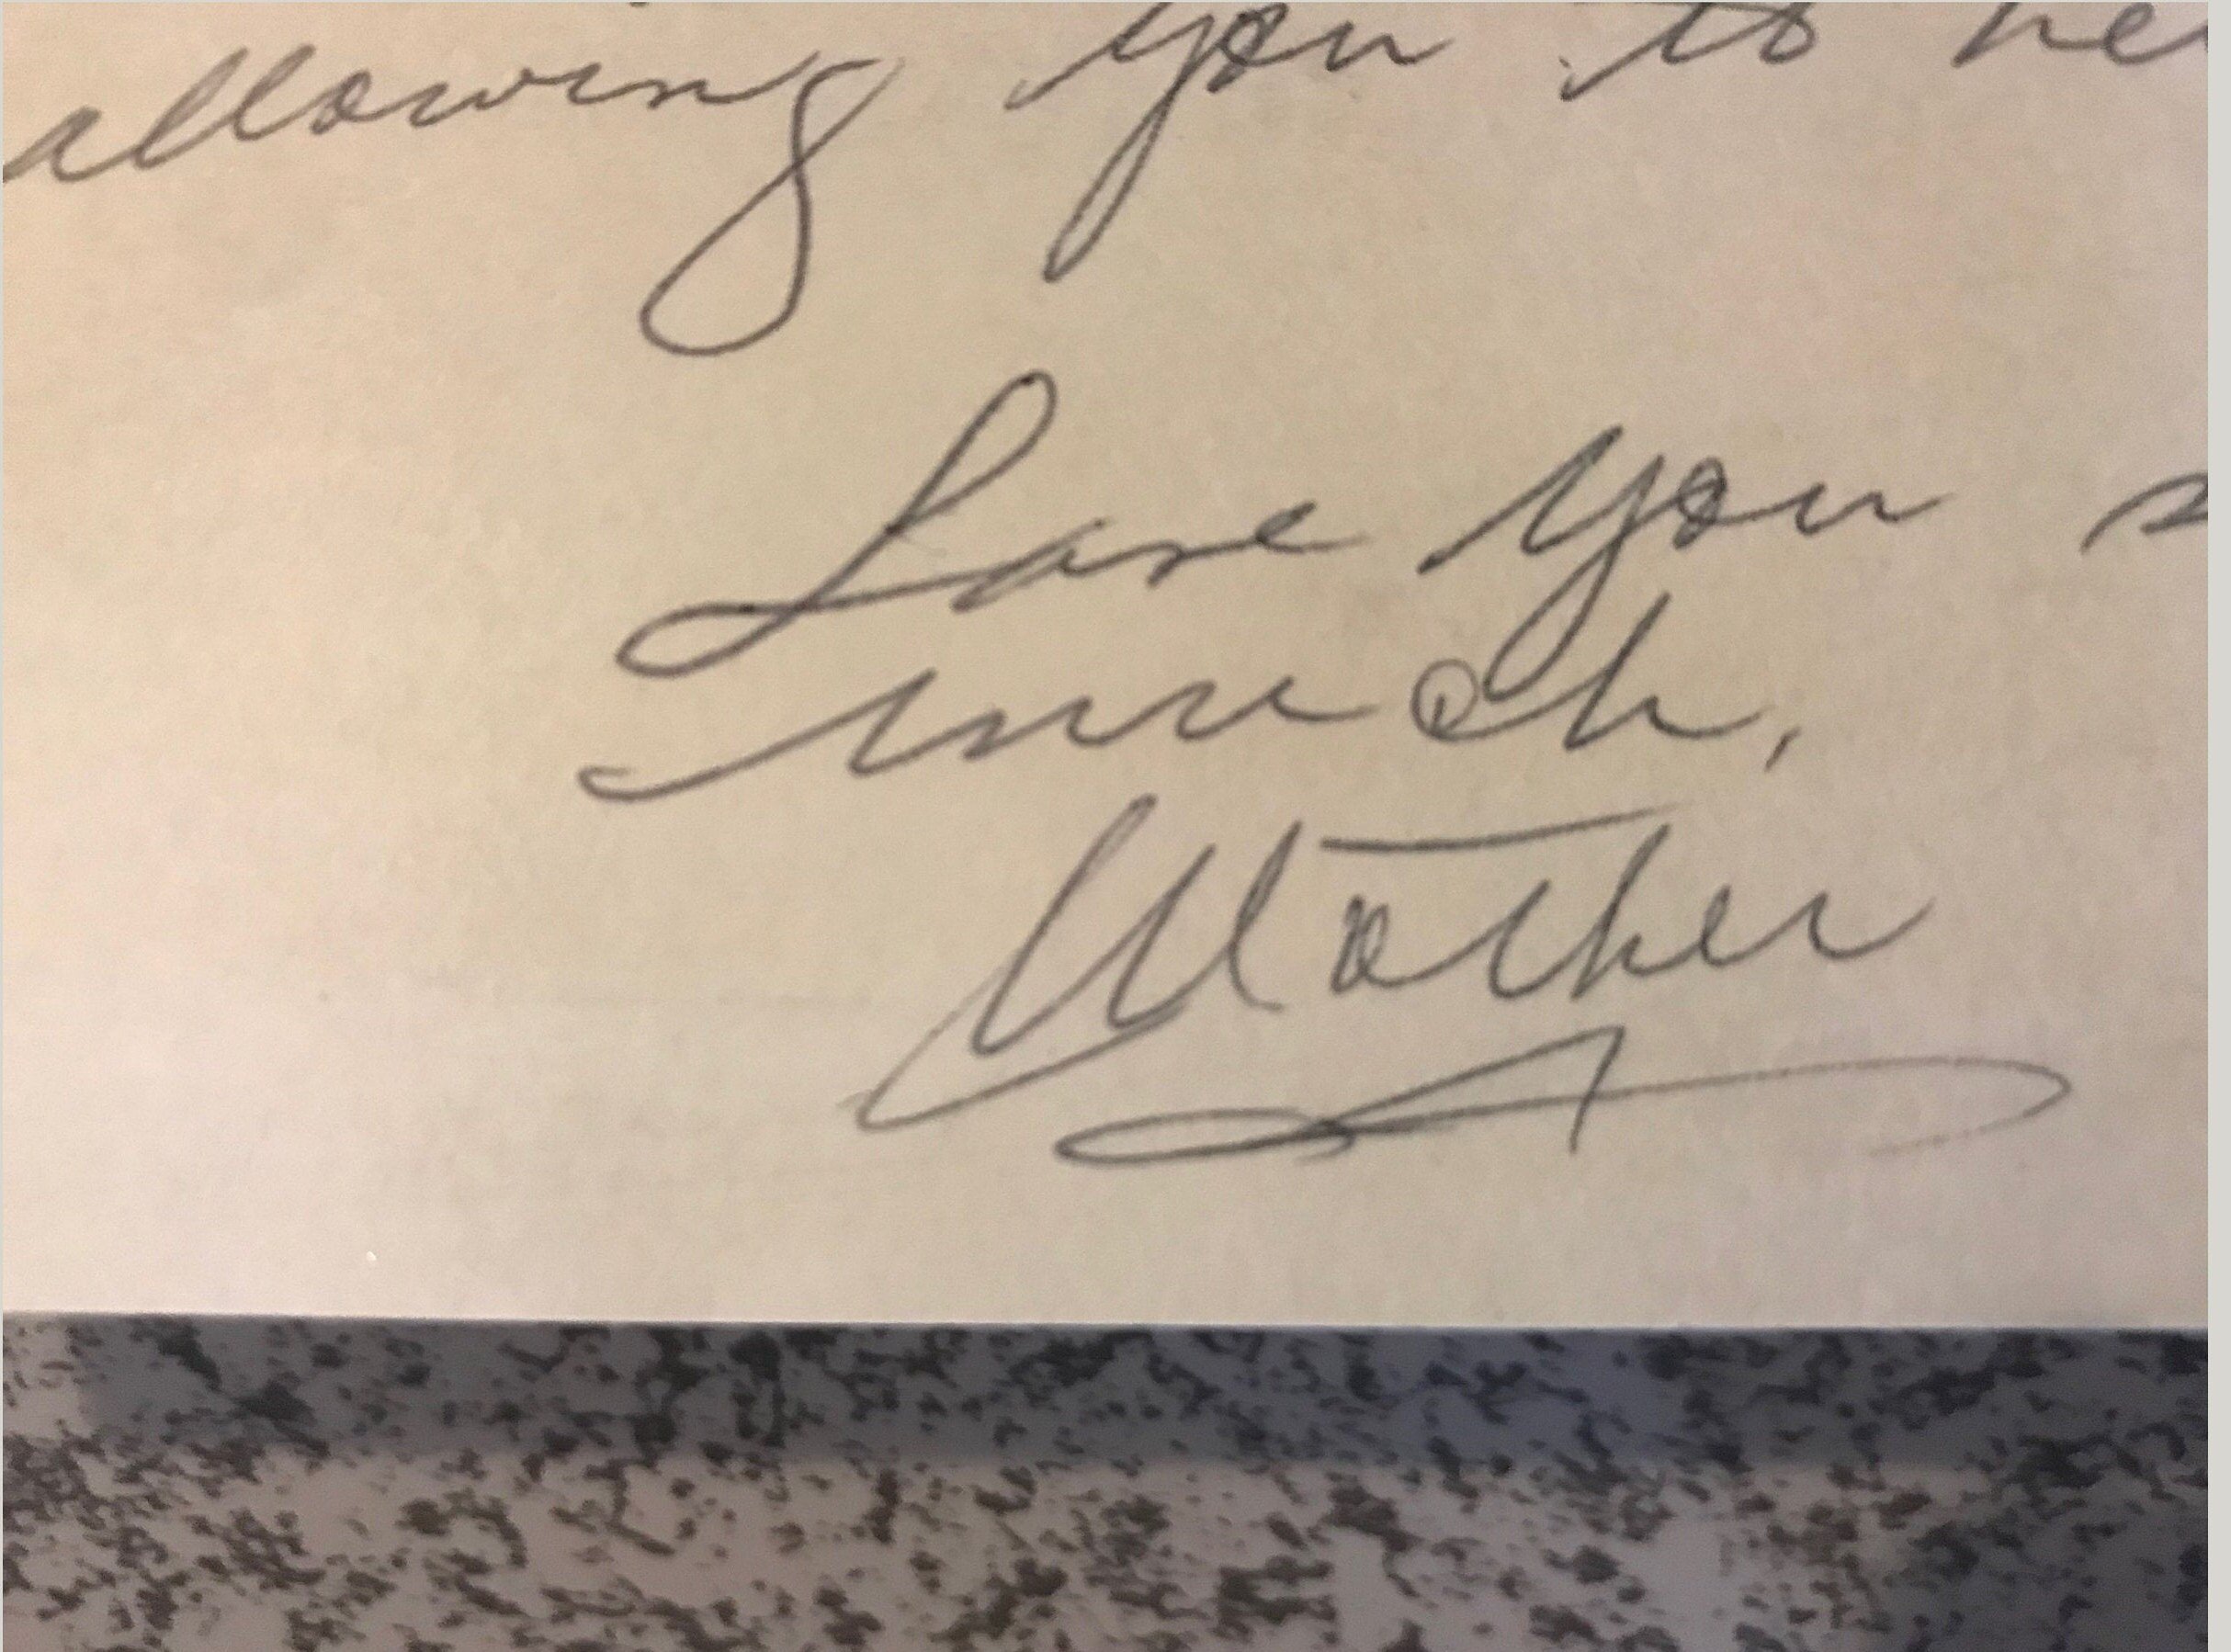 allowing you to
Love you
much,
Mother